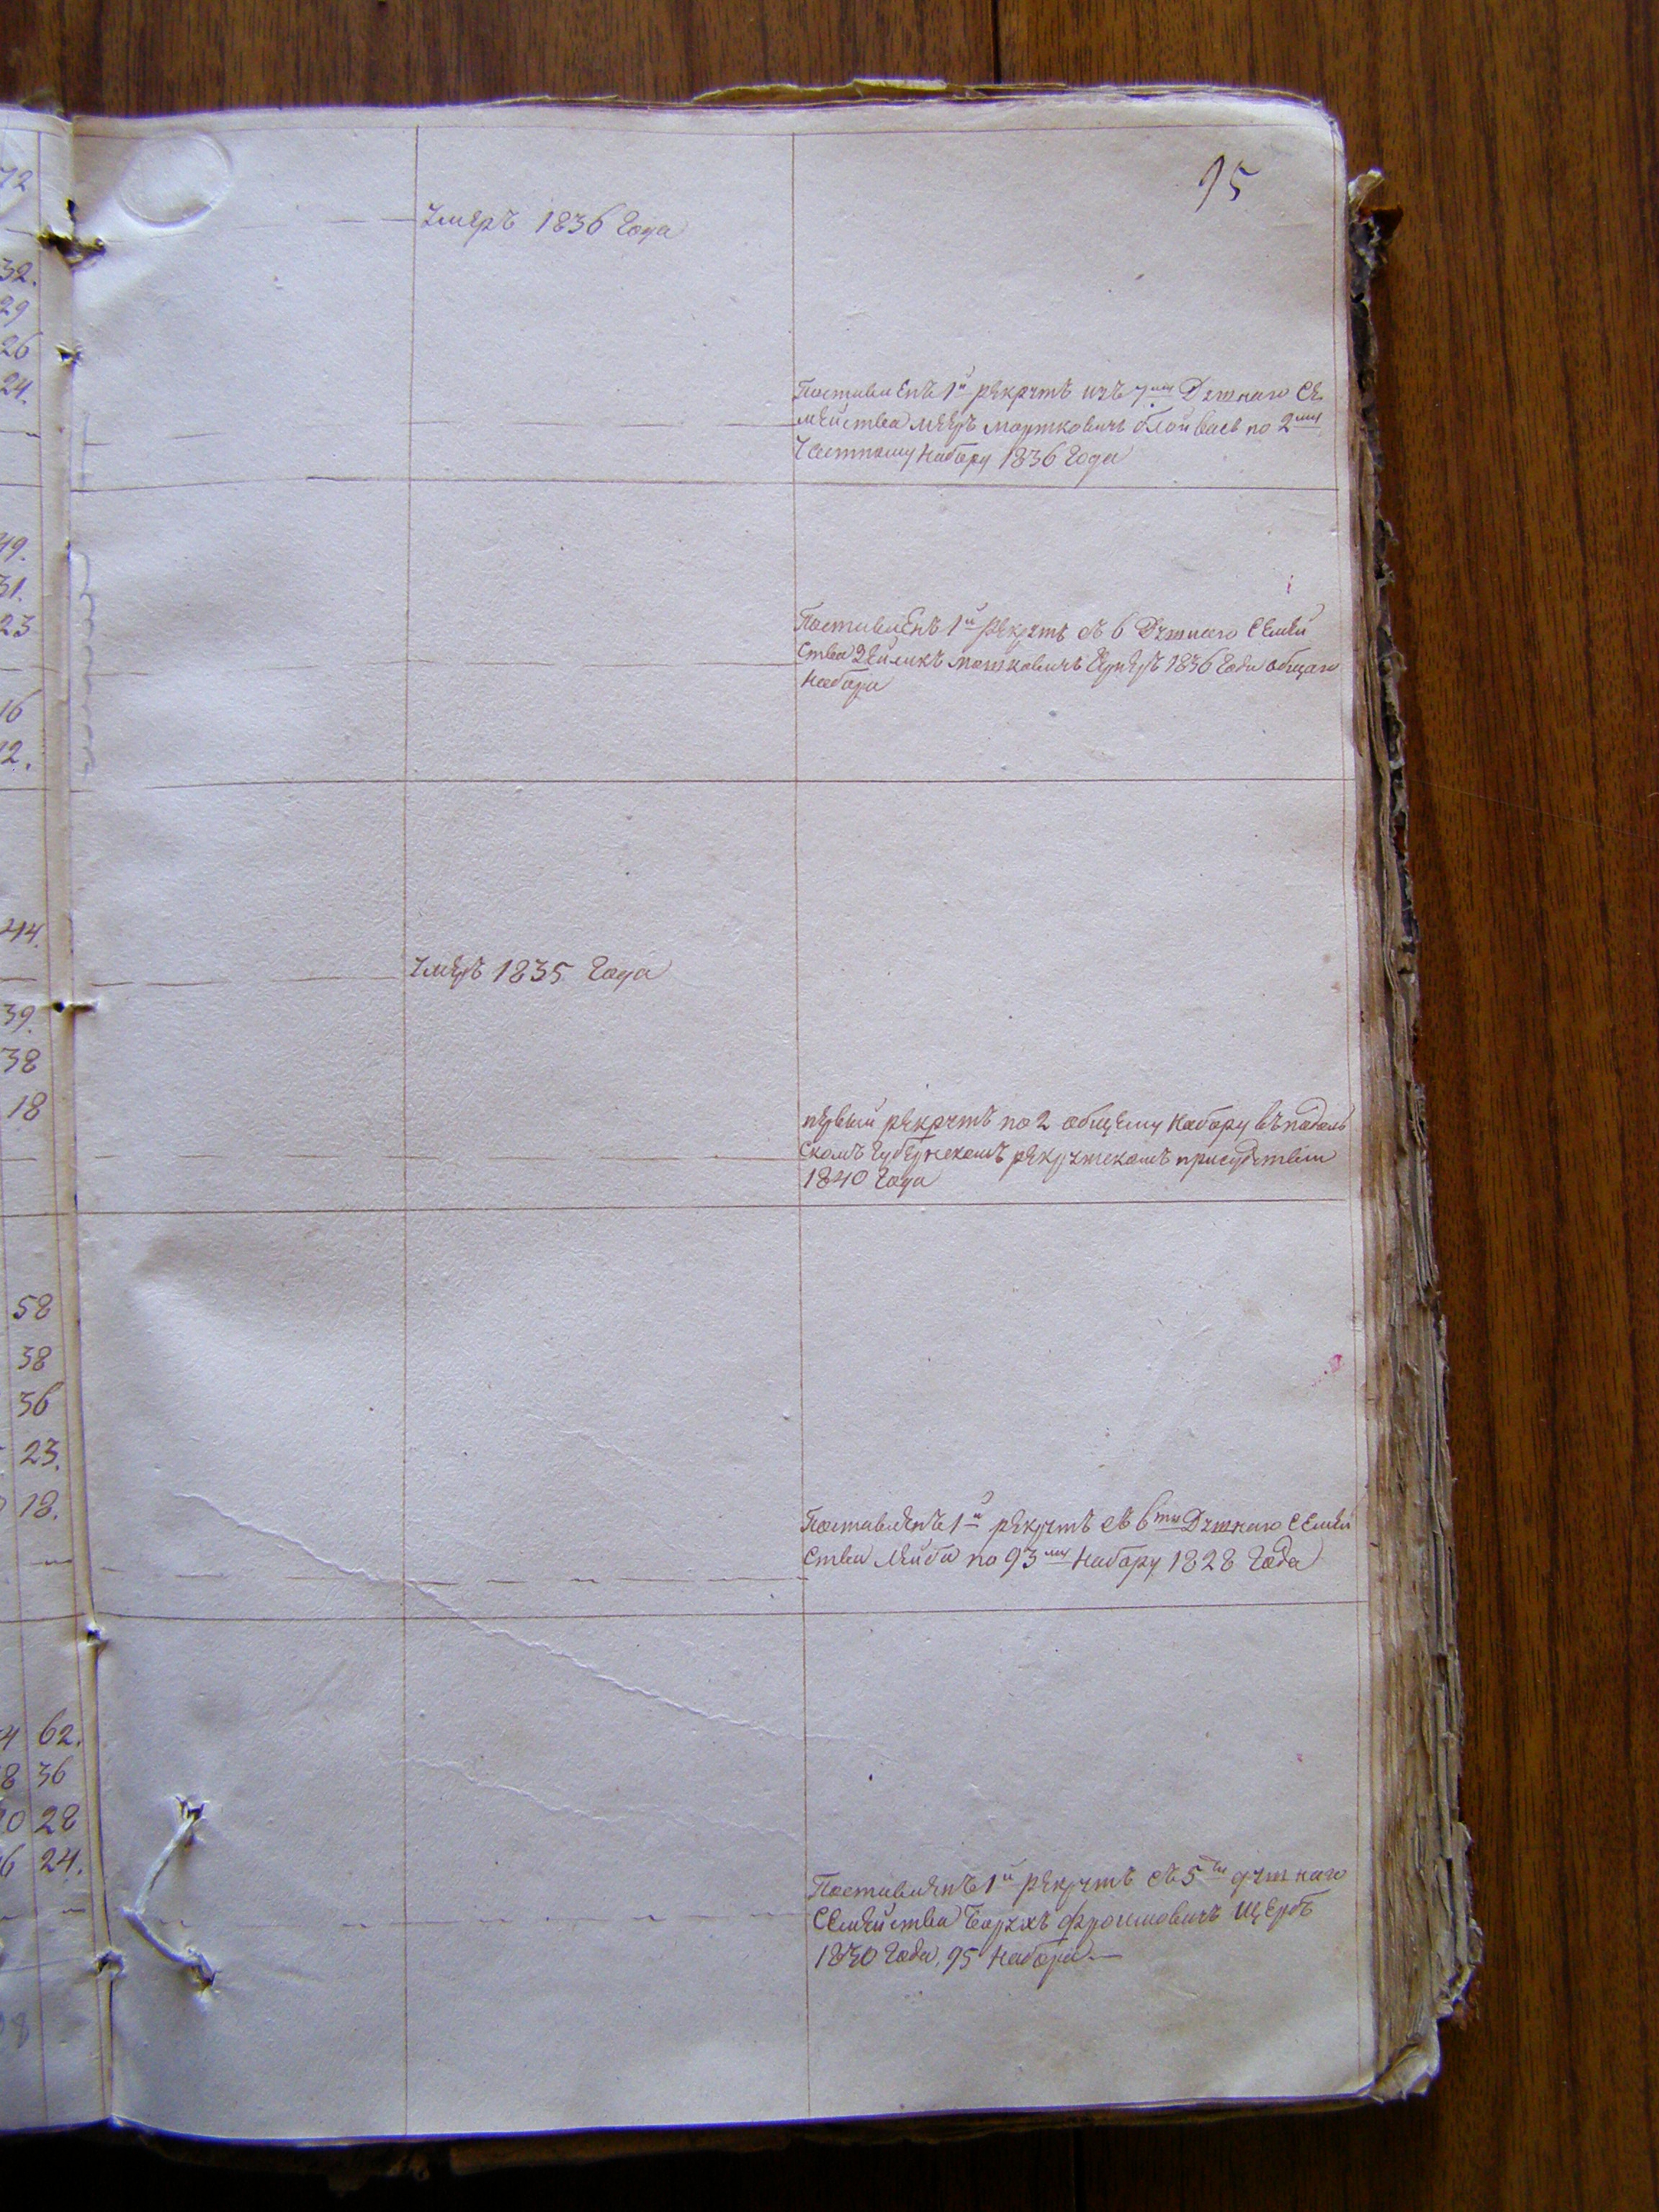 95
72
Умеръ 1836 Года
32.
29
26
24.
Поставленъ 1й рекрутъ изъ 7ми Душнаго Се
мейства Мееръ Мортковичъ по 2му
Частному набору 1836 Года
49.
31.
23
Поставленъ 1й рекрутъ съ 6 Душнаго Семей
ства Зейликъ Мошковичъ 1836 Года общаго
набора
16
12.
44.
Умеръ 1835 Года
39.
38
18
первый рекрутъ по 2 общему набору въ подоль
скомъ Губернскомъ рекрутскомъ присудствии
1840 Года
58
38
36
23.
18.
Поставленъ 1й рекрутъ съ 6ти Душнаго Семей
ства Лейба по 93му набору 1828 Года
4 62.
8 36
0 28
6 24.
Поставленъ 1й рекрутъ съ 5ти душнаго
Семейства Борухъ Фроимовичъ Щербъ
1830 Года, 95 набора